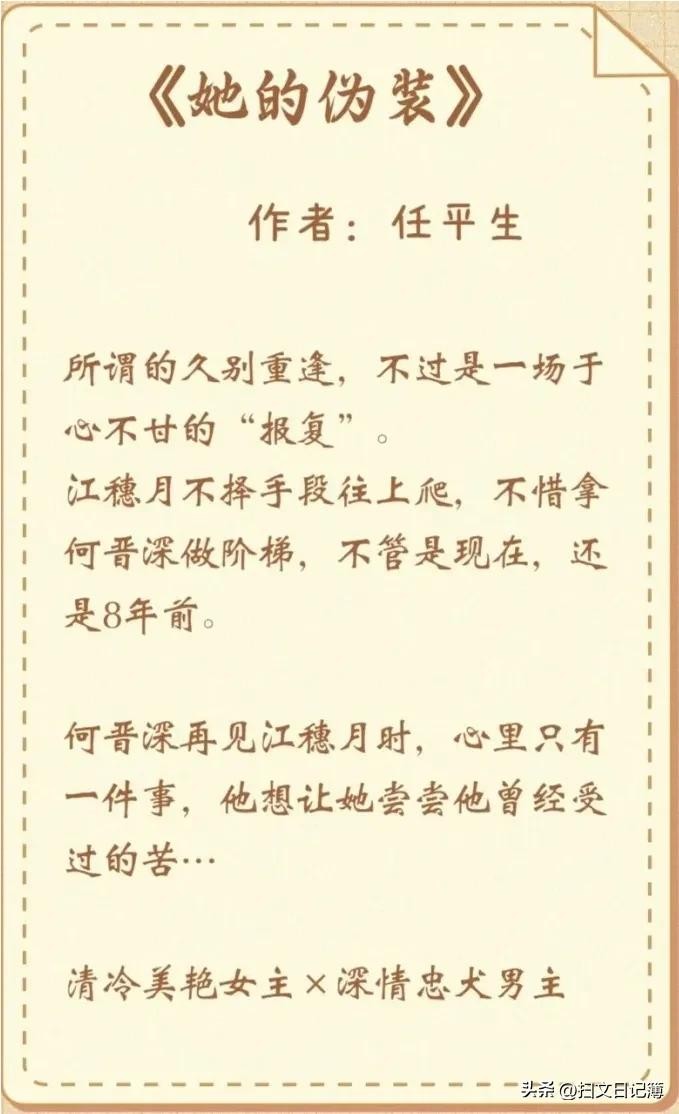 《她的伪装》
作者：任平生
所谓的久别重逢，不过是一场于
心不甘的“报复”。
江穗月不择手段往上爬，不惜拿
何晋深做阶梯，不管是现在，还
是8年前。
何晋深再见江穗月时，心里只有
一件事，他想让她尝尝他曾经受
过的苦…
清冷美艳女主×深情忠犬男主
头条 @扫文日记簿